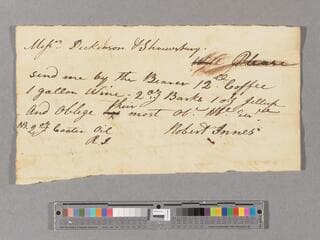 Messrs. Dickinson & Shrewsbury.
Will Please
send me by the Bearer 12 lb Coffee
1 gallon Wine, 2 oz Barks 1 oz Jellap
And Oblige their most Ob.
NB 2 oz Caster Oil Robert Innes
R I